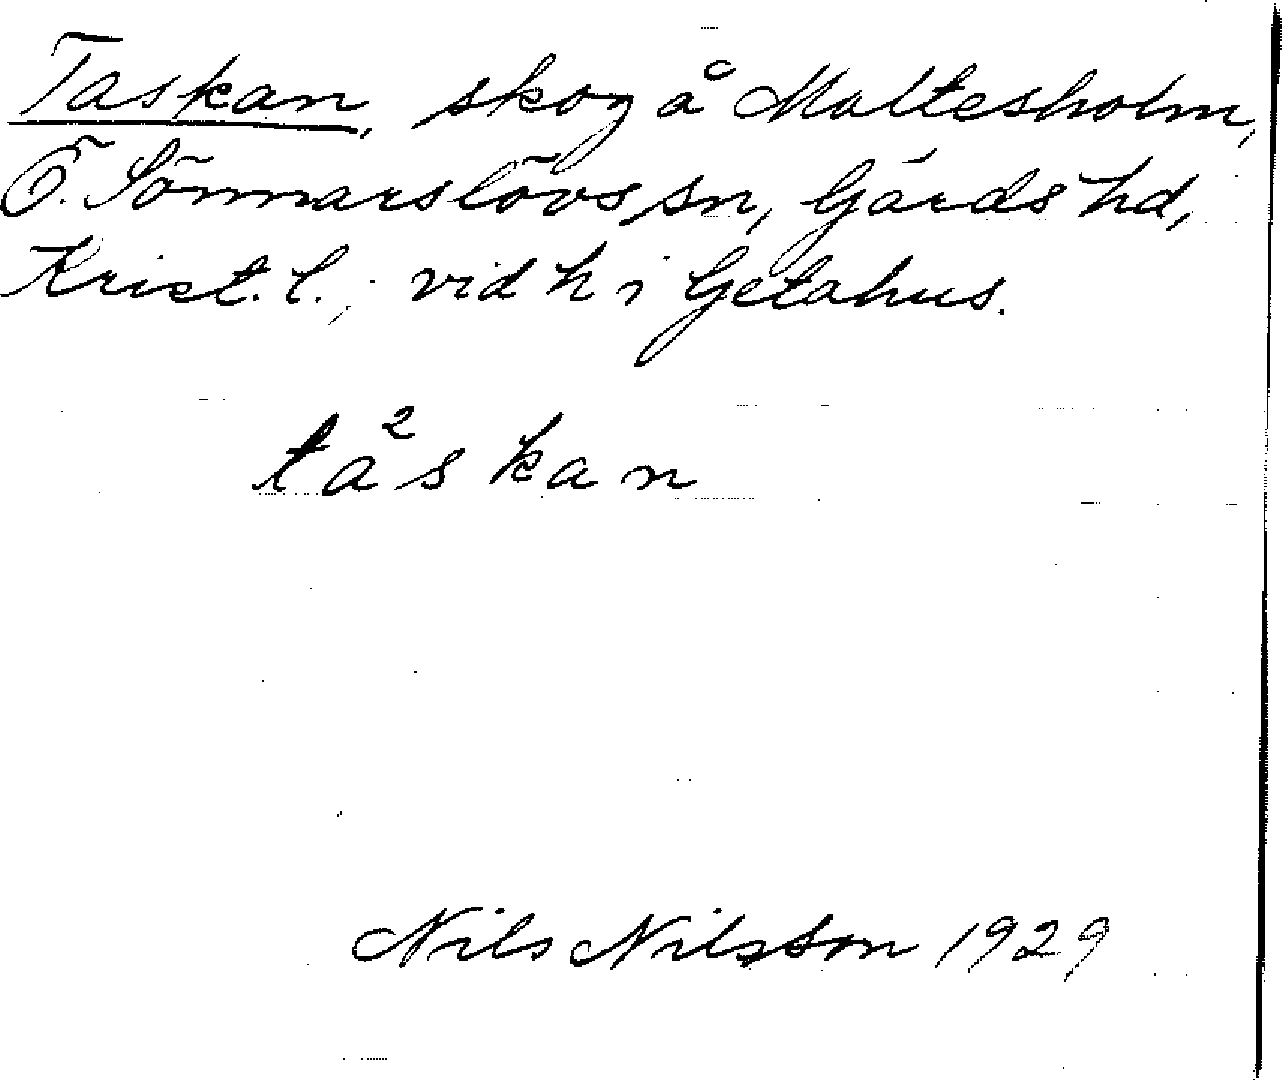 Taskan, skog å Maltesholm,
Ö. Sönnarslövs sn, Gärds hd,
Krist. l.; vid h i Getahus.
ta²skan
Nils Nilsson 1929